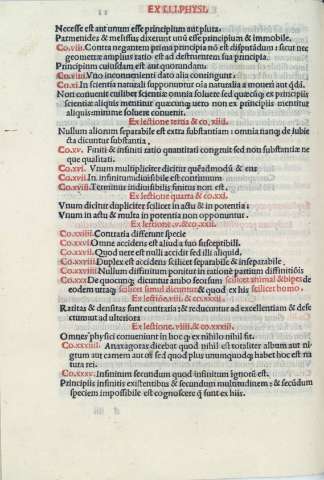 EX LI.I.PHYSI.
Necesse est aut unum esse principium aut plura.
Parmenides & melissus dixerunt unũ esse principium & immobile.
Co.viii. Contra negantem prima principia nõ est disputãdum: sicut nec
geometræ amplius ratio est ad destruentem sua principia.
Principium cuiusdam est aut quorundam.
Co.viiii. Vno inconuenienti dato alia contingunt.
Co.xi. In scientia naturali supponuntur oĩa naturalia a moueri aut qdã.
Non conuenit cuilibet scientiæ omnia soluere sed quæcũq; ex principiis
scientiæ aliquis mentitur quæcunq; uero non ex principiis mentitur
aliquis: minime soluere conuenit.
Ex lectione tertia & co. xiiii.
Nullum aliorum separabile est extra substantiam: omnia nanq; de subie
cta dicuntur substantia.
Co.xv. Finiti & infiniti ratio quantitati congruit sed non substantiæ ne
que qualitati.
Co.xvi. Vnum multipliciter dicitur quẽadmodũ & ens
Co.xvii. In infinitum diuisibile est continuum
Co.xviii. Terminus indiuisibilis finitus non est.
Ex lectione quarta & co.xxi.
Vnum dicitur dupliciter scilicet in actu & in potentia:
Vnum in actu & multa in potentia non opponuntur.
Ex lectione .v. &co.xxii.
Contraria differunt specie
Omne accidens est aliud a suo susceptibili.
Quod uere est nulli accidit sed illi aliquid.
Duplex est accidens scilicet separabile & inseparabile.
Nullum diffinitum ponitur in ratione partium diffinitiõis
Co.xxx De quocunq; dicuntur ambo seorsum scilicet animal & bipes de
eodem utraq; scilicet simul dicuntur & quod ex his scilicet homo.
Ex lectiõe.viii. & cõ.xxxii.
Raritas & densitas sunt contraria & reducuntur ad excellentiam & defe
ctum ut ad ulteriora
Ex lectione. viiii. & co.xxxiii.
Omnes physici conueniunt in hoc q ex nihilo nihil fit.
Co.xxxiiii. Anaxagoras dicebat quod nihil est totaliter album aut ni-
grum aut camem aut os sed quod plus unumquodq; habet hoc est na
tura rei.
Co.xxxv. Infinitum secundum quod infinitum ignotũ est.
Principiis infinitis existentibus & secundum multitudinem: & secũdum
speciem impossibile est cognoscere q sunt ex hiis.